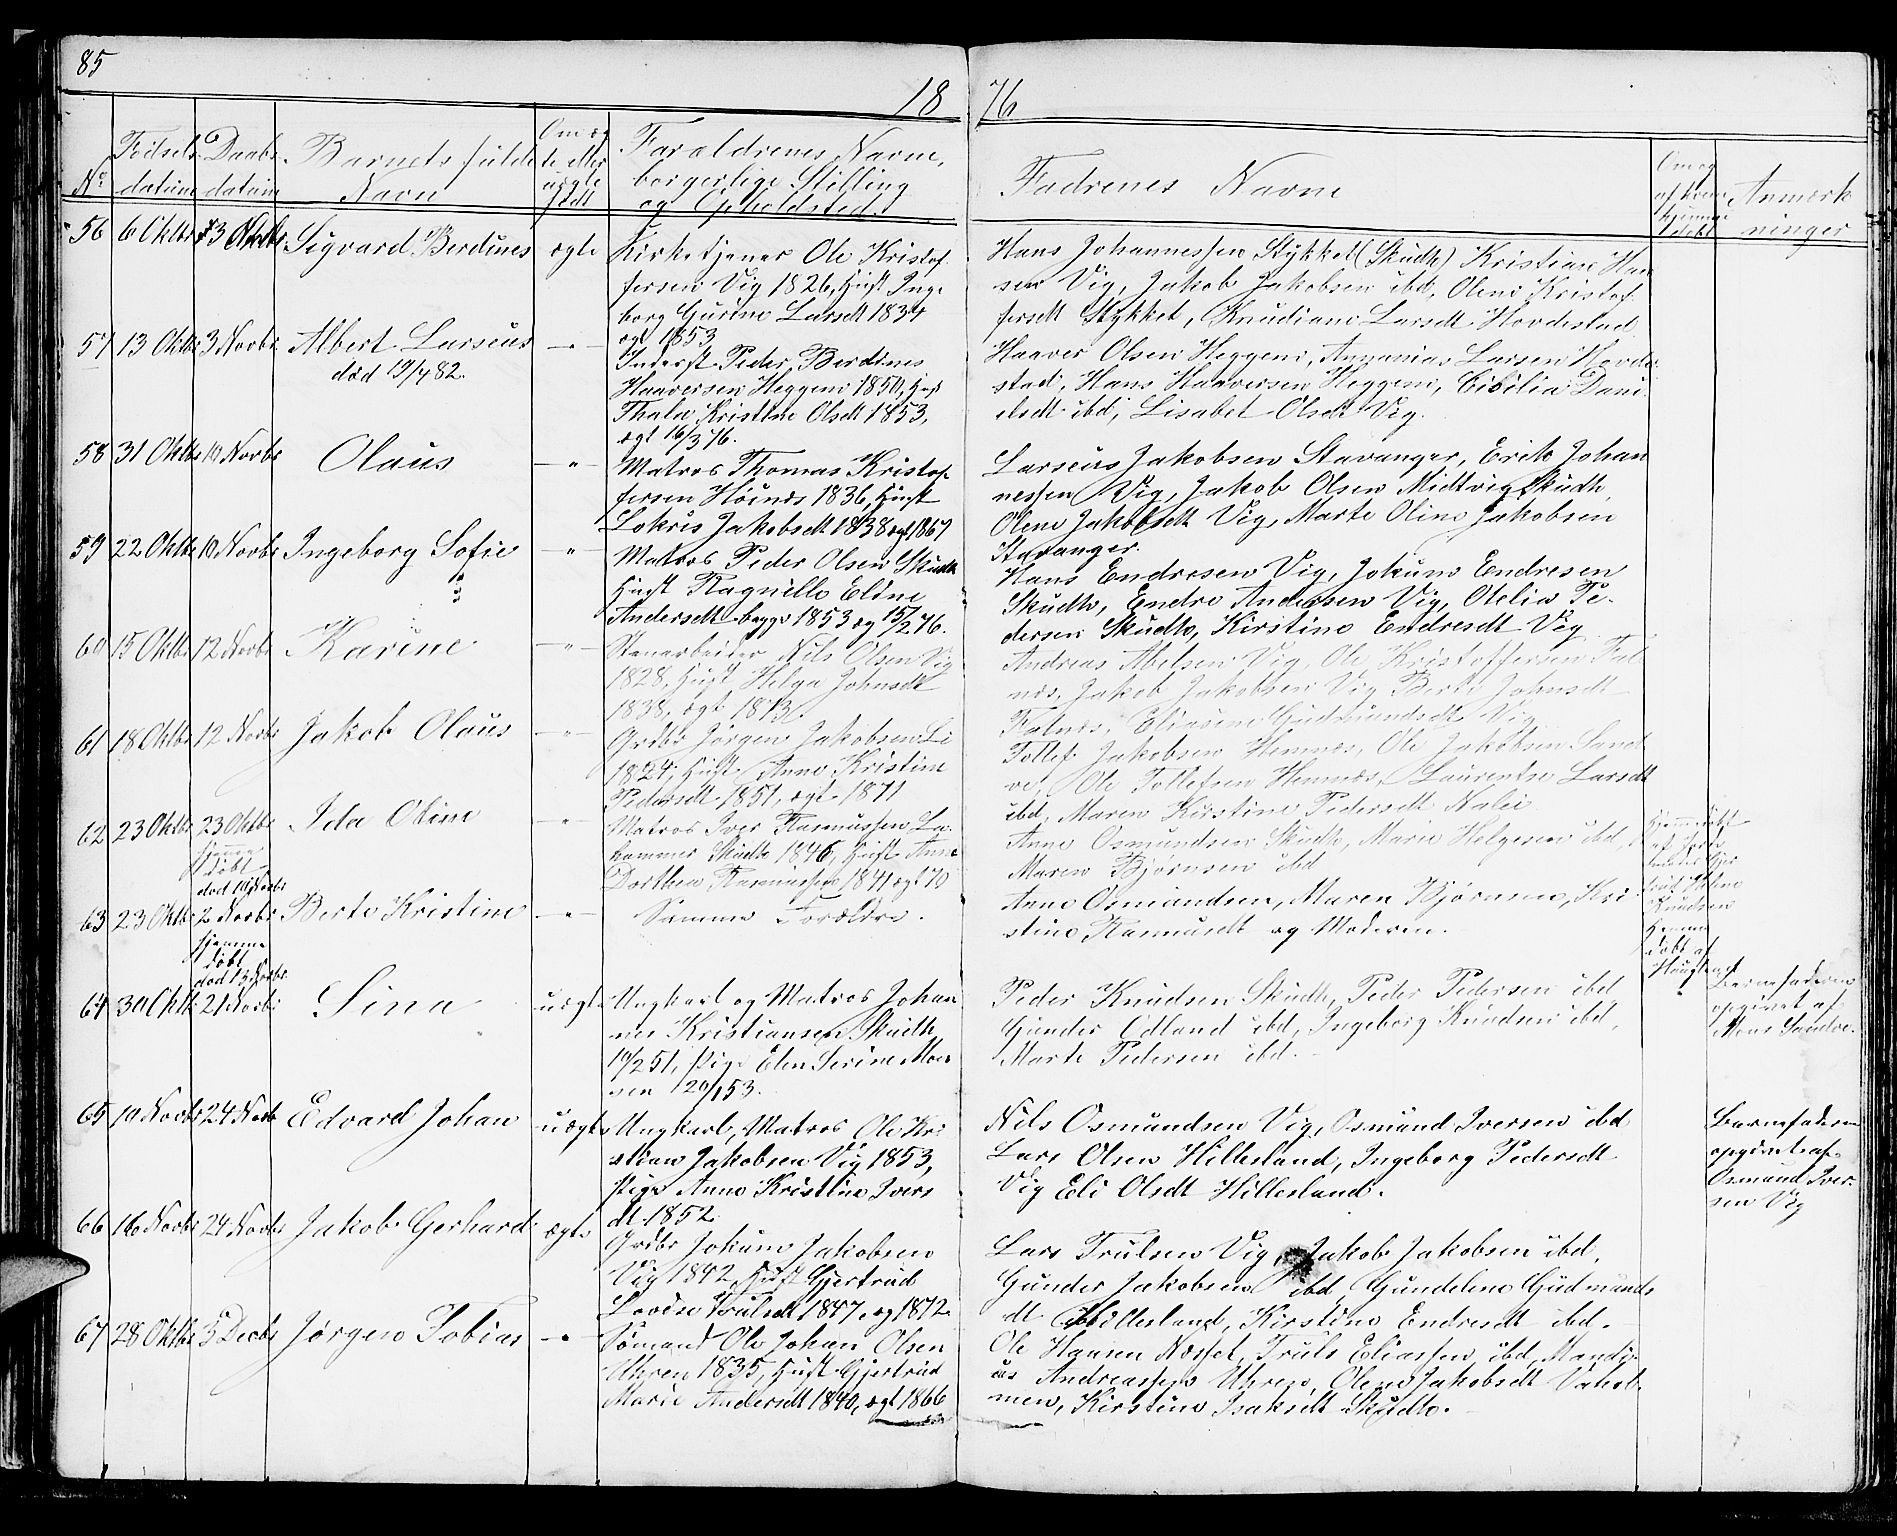 85
18 76
No
Födsels datum
Daabs datum
Barnets fulde Navn
Om æg te eller uægte född
Foraldrenes Navne, borgerlige Stilling og Opholdsted.
Fadrenes Navne
Om og af hvem hjemme döbt
Anmærk ninger
56 6 Oktbr 3 Novbr Sigvard Berdines ægte
Kirketjener Ole Kristof
fersen Vig 1826, Hust Inge
borg Gurine Larsdt 1834
ægt 1853
Hans Johannessen Stykket (Skudh) Kristian Han
sen Vig, Jakob Jakobsen ibd, Olene Kristof
fersdt Stykket, Knudiane Larsdt Hovdestad
57 13 Oktbr 3 Novbr Albert Larseus — " —
död 19/4 82.
Inderst Peder Berdines
Haaversen Heggem 1850, Hust
Thala Kristine Olsdt 1853,
ægt 16/3 76.
Haaver Olsen Heggem, Annanias Larsen Hovde
stad, Hans Haaversen Heggem, Cicilia Dani
elsdt ibd, Lisabet Olsdt Vig.
58 31 Oktbr 10 Novbr Olaus — " —
Matros Thomas Kristof
fersen Höinæs 1836, Hust
Lokris Jakobsdt 1838 ægt 1867
Larseus Jakobsen Stavanger, Erik Johan
nessen Vig, Jakob Olsen Midtvig Skudh,
Olene Jakobsdt Vig, Marte Oline Jakobsen
Stavanger.
59 22 Oktbr 10 Novbr Ingeborg Sofie — " —
Matros Peder Olsen Skudh
Hust Ragnille Eline
Andersdt begge 1853 æg 15/2 76.
Hans Endresen Vig, Jokum Endresen
Skudh, Endre Andersen Vig, Otelia Pe-
dersen Skudh, Kirstine Endresdt Vig
60 15 Oktbr 12 Novbr Karine — " —
Stenarbeider Nils Olsen Vig
1828, Hust Helga Johnsdt
1838, ægt 1873.
Andreas Abelsen Vig, Ole Kristoffersen Fal
næs, Jakob Jakobsen Vig Berte Johnsdt
Falnæs, Eliasine Gudmundsdt Vig
61 18 Oktbr 12 Novbr Jakob Olaus — " —
Grdbr Jörgen Jakobsen Li
1824, Hust Anne Kristine
Pedersdt 1851, ægt 1871
Tollef Jakobsen Hemnæs, Ole Jakobsen Sand
ve, Ole Tollefsen Hemnæs, Laurentse Larsdt
ibd, Maren Kirstine Pedersdt
62 23 Oktbr 23 Oktbr Ida Oline — " —
hjemme döbt
död 10 Novbr
Matros Iver Rasmussen La
hammer Skudh 1846, Hust Anne
Dorthea Rasmussen 1841 ægt 70
Anne Osmundsen Skudh, Marie Helgesen ibd,
Maren Bjørnsen ibd
Hjemmedöbt af Jorde moder Gjer trud Knudsen
63 23 Oktbr 2 Novbr Berte Kristine — " —
hjemme döbt
död 13 Novbr
Samme Forældre.
Anne Osmundsen, Maren Bjørnsen, Kri
stine Rasmusdt og Moderen.
Hjemme döbt af
64 30 Oktb 21 Novbr Sina uægte
Ungkarl og Matros Johan
nes Kristiansen Skudh
19/2 51, Pige Elen Serine Mon
sen 20/1 53.
Peder Knudsen Skudh, Peder Pedersen ibd
Gunder Edland ibd, Ingeborg Knudsen ibd,
Marte Pedersen ibd.
Barnefaderen
opgivet af
Mons Sandve.
65 10 Novbr 24 Novb Edvard Johan uægte
Ungkarl, Matros Ole Kri
stian Jakobsen Vig 1853,
Pige Anne Kristine Ivers
dt 1852
Nils Osmundsen Vig, Osmund Iversen ibd
Lars Olsen Hillesland, Ingeborg Pedersdt
Vig Eli Olsdt Hillesland.
Barnefaderen
opgivet af
Osmund Iver-
sen Vig
66 16 Novbr 24 Novbr Jakob Gerhard ægte
Grdbr Jokum Jakobsen
Vig 1842, Hust Gjertrud
Lovdse Trulsdt 1847, æg 1872
Lars Trulsen Vig, Jakob Jakobsen ibd,
Gunder Jakobsen ibd Gundeline Gudmunds
dt Hillesland, Kirstine Endresdt ibd.
67 28 Oktbr 5 Decbr Jørgen Tobias — " —
Sømand Ole Johan Olsen
Uhren 1835, Hust Gjertrud
Marie Andersdt 1840, ægt 1866
Ole Hansen Næsset, Truls Eliassen ibd, Mandi-
us Andreassen Uhren, Olene Jakobsdt Vahol-
men, Kirstine Isaksdt Skudh.